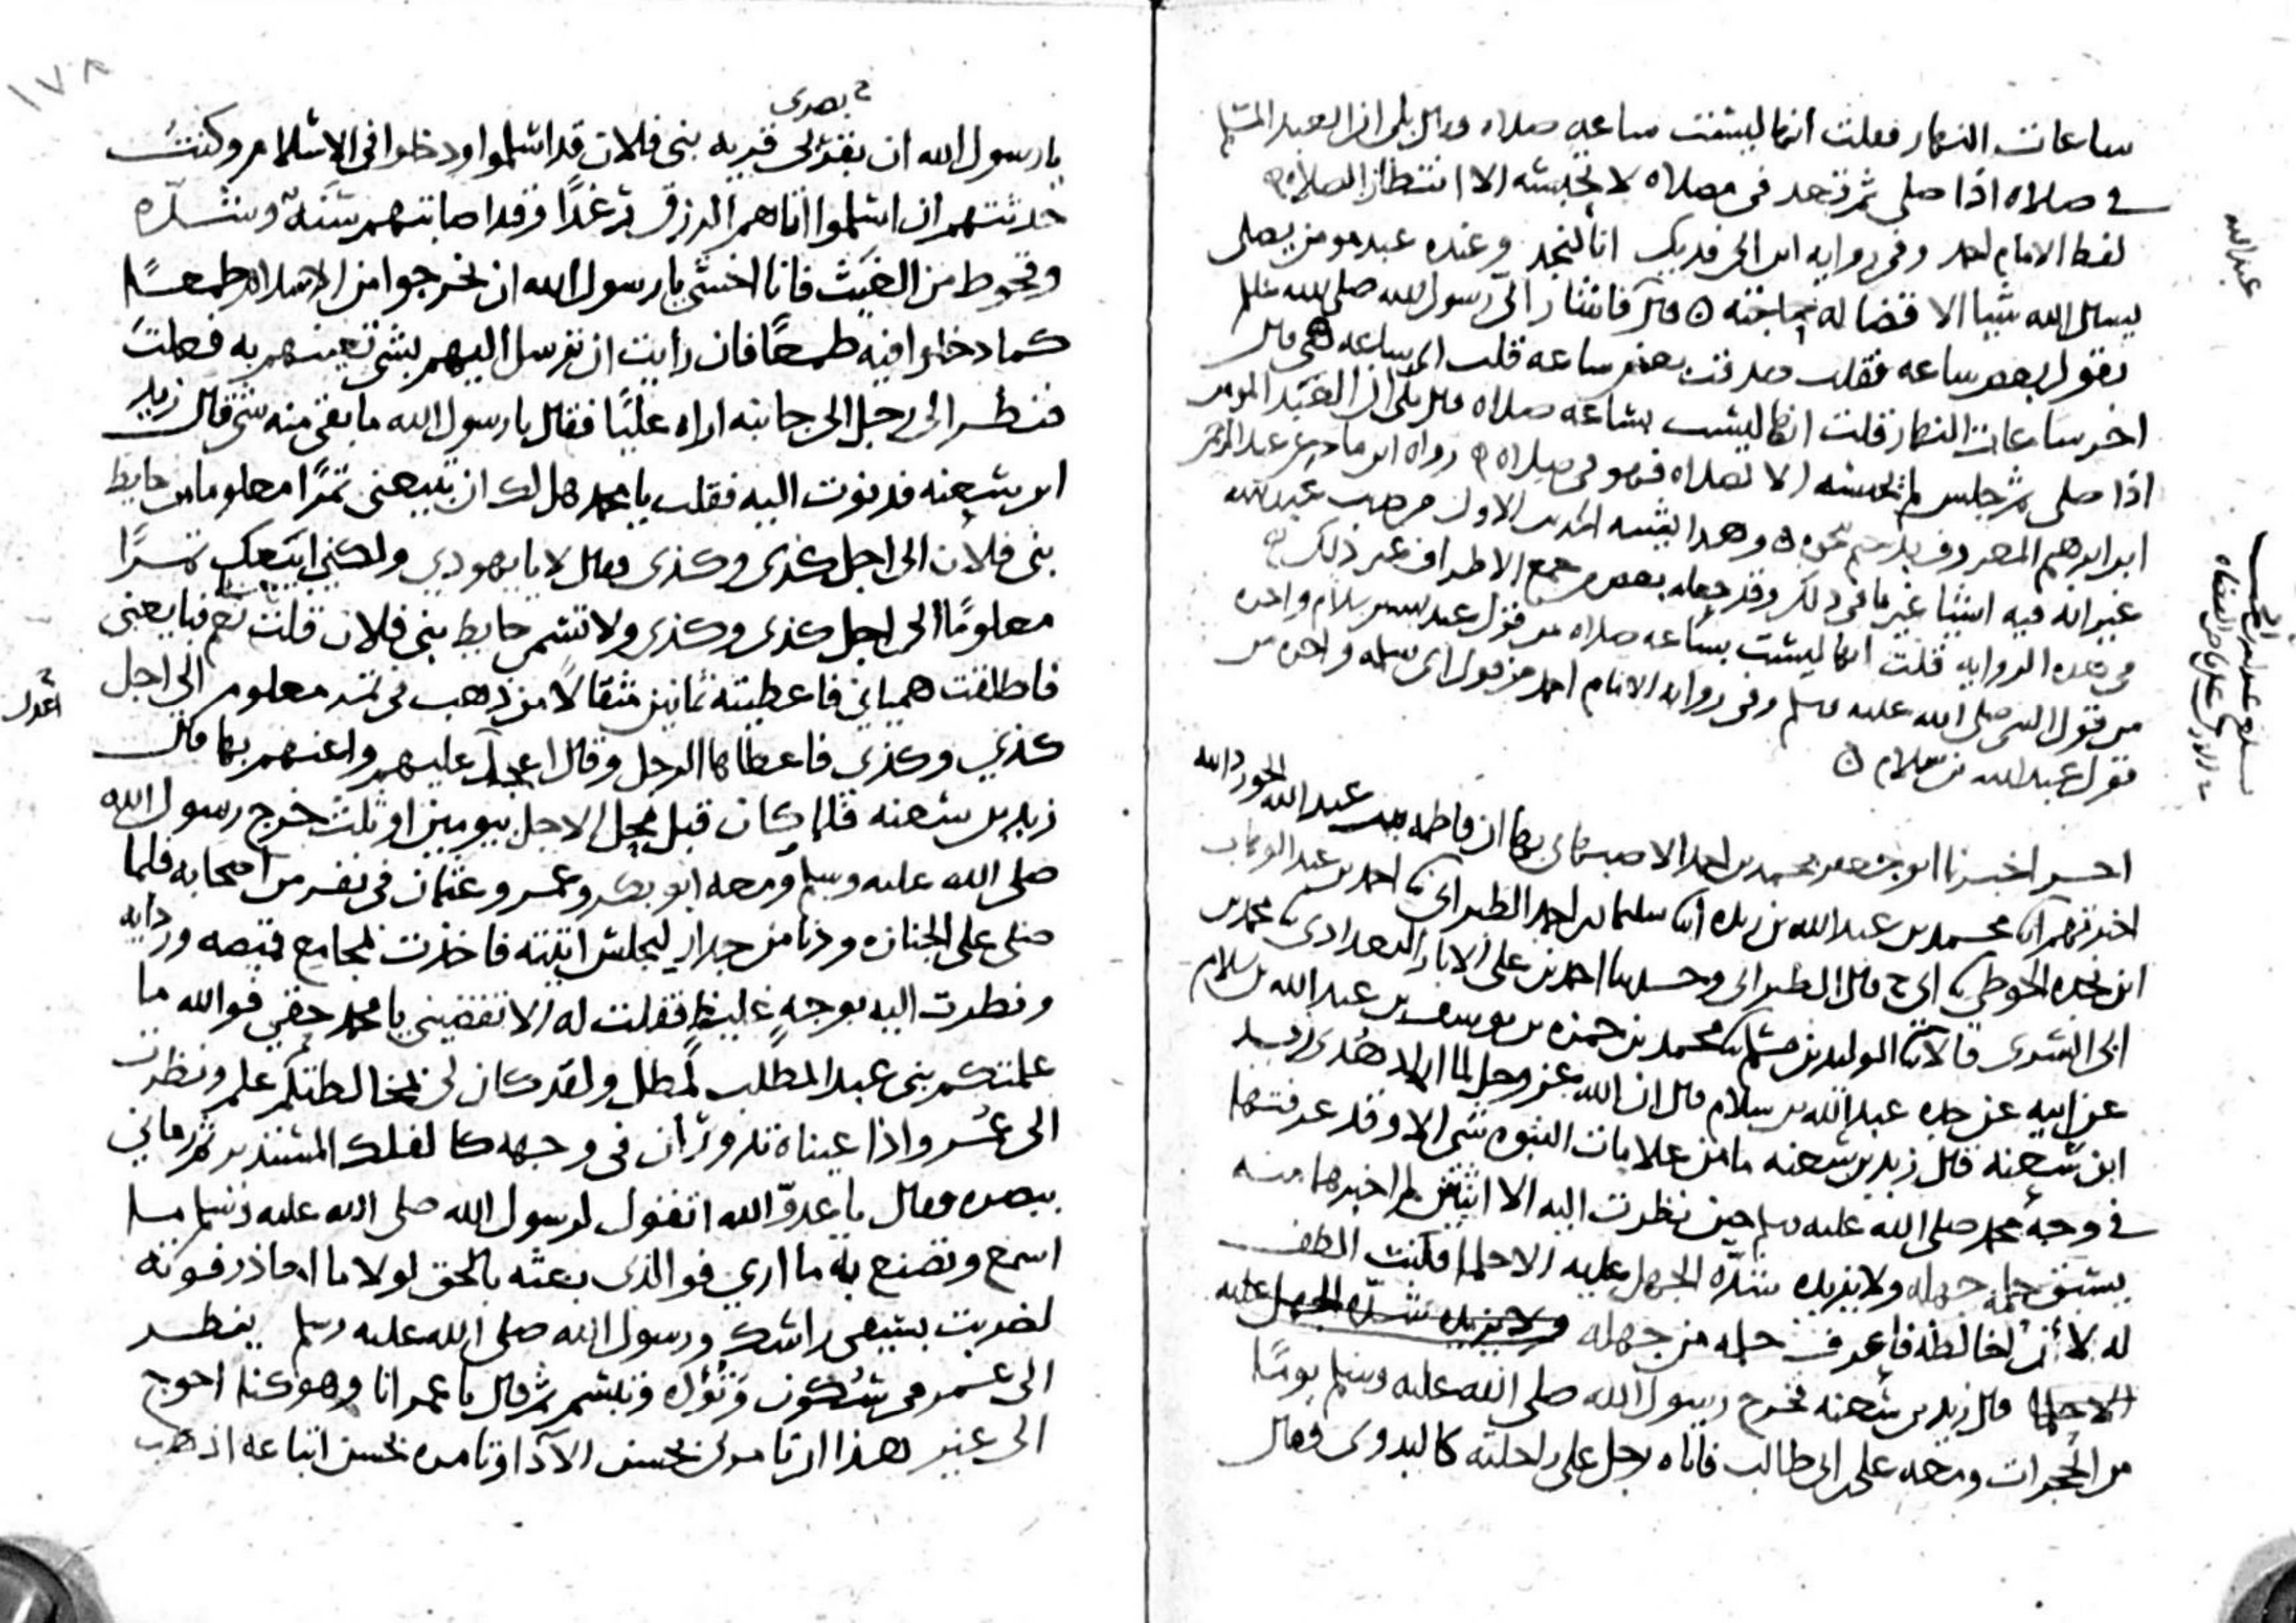 ساعات النهار فقلت انها ليست ساعه صلاه قال بلى ان العبد المسلم
في صلاه اذا صلى ثم قعد في مصلاه لا يحبسه الا انتظار الصلاه
لفظ الامام احمد وفي روايه ابن ابي فديك انا لنجد وعنده عبد مومن يصلي
يسال الله شيا الا قضا له حاجته قال فاشار الي رسول الله صلى الله عليه وسلم
يقول بعض ساعه فقلت صدقت بعض ساعه قلت اي ساعه هي قال
اخر ساعات النهار قلت انها ليست بساعه صلاه قال بلى ان العبد المومن
اذا صلى ثم جلس لم يحبسه الا الصلاه فهو في صلاه رواه ابن ماجه عن عبد الرحمن
ابن ابراهيم المعروف بدحيم نحوه وهذا يشبه الحديث الاول من حديث عبد الله
غير انه فيه اشيا غير ما في ذلك وقد جعله بعض من جمع الاطراف غير ذلك
في هذه الروايه قلت انها ليست بساعه صلاه من قول عبد الله بن سلام واخره
من قول النبي صلى الله عليه وسلم وفي روايه الامام احمد من قول ابي سلمه واخره من
قول عبد الله بن سلام
اخبرنا ابو جعفر محمد بن احمد الاصبهاني بها ان فاطمه بنت عبد الله الجوزدانيه
اخبرتهم ابنا محمد بن عبد الله بن ريذه ابنا سليمان بن احمد الطبراني ثنا احمد بن عبد الوهاب
ابن نجده الحوطي ثنا ابي ح قال الطبراني وحدثنا احمد بن علي الابار البغدادي ثنا محمد بن
ابي السري قالا ثنا الوليد بن مسلم ثنا محمد بن حمزه بن يوسف بن عبد الله بن سلام
عن ابيه عن جده عبد الله بن سلام قال ان الله عز وجل لما اراد هدى زيد
ابن سعنه قال زيد بن سعنه ما من علامات النبوه شي الا وقد عرفتها
في وجه محمد صلى الله عليه وسلم حين نظرت اليه الا اثنتين لم اخبرهما منه
يسبق حلمه جهله ولا يزيده شدة الجهل عليه الا حلما فكنت الطف
له لأن اخالطه فاعرف حلمه من جهله ولا يزيده شدة الجهل عليه
الا حلما قال زيد بن سعنه فخرج رسول الله صلى الله عليه وسلم يومًا
من الحجرات ومعه علي بن ابي طالب فاتاه رجل على راحلته كالبدوي فقال
عبد الله
١٧٨
بصرى
يا رسول الله ان بقربى قريه بني فلان قد اسلموا ودخلوا في الاسلام وكنت
حدثتهم ان اسلموا اتاهم الرزق رغدًا وقد اصابتهم سَنَة وشدّه
وقحوط من الغيث فانا اخشى يا رسول الله ان يخرجوا من الاسلام طمعًا
كما دخلوا فيه طمعًا فان رايت ان ترسل اليهم بشي تعينهم به فعلت
فنظر الى رجل الى جانبه اراه عليًا فقال يا رسول الله ما بقى منه شي قال زيد
ابن سعنه فدنوت اليه فقلت يا محمد هل لك ان تبيعني تمرًا معلوما من حايط
بني فلان الى اجل كذى وكذى فقال لا يا يهودي ولكني ابيعك تمرًا
معلومًا الى اجل كذى وكذى ولا تسم حايط بني فلان قلت نعم فبايعني
فاطلقت همياني فاعطيته ثمانين مثقالا من ذهب في تمر معلوم الى اجل
كذي وكذي فاعطاها الرجل وقال اعجل عليهم واعنهم بها قال
اعدل
زيد بن سعنه فلما كان قبل محل الاجل بيومين او ثلث خرج رسول الله
صلى الله عليه وسلم ومعه ابو بكر وعمر وعثمان في نفر من اصحابه فلما
صلى على الجنازه ودنا من جدار ليجلس اتيته فاخذت بمجامع قميصه وردايه
ونظرت اليه بوجه غليظ فقلت له الا تقضيني يا محمد حقي فوالله ما
علمتكم بني عبد المطلب لمطل ولقد كان لي بمخالطتكم علم ونظرت
الى عمر واذا عيناه تدوران في وجهه كالفلك المستدير ثم رماني
ببصره فقال يا عدوّ الله اتقول لرسول الله صلى الله عليه وسلم ما
اسمع وتصنع به ما اري فوالذي بعثه بالحق لولا ما احاذر فوته
لضربت بسيفي راسك ورسول الله صلى الله عليه وسلم ينظر
الى عمر في سكون وتؤده وتبسم ثم قال يا عمر انا وهو كنا احوج
الى غير هذا ان تامرني بحسن الادا وتامره بحسن اتباعه اذهب